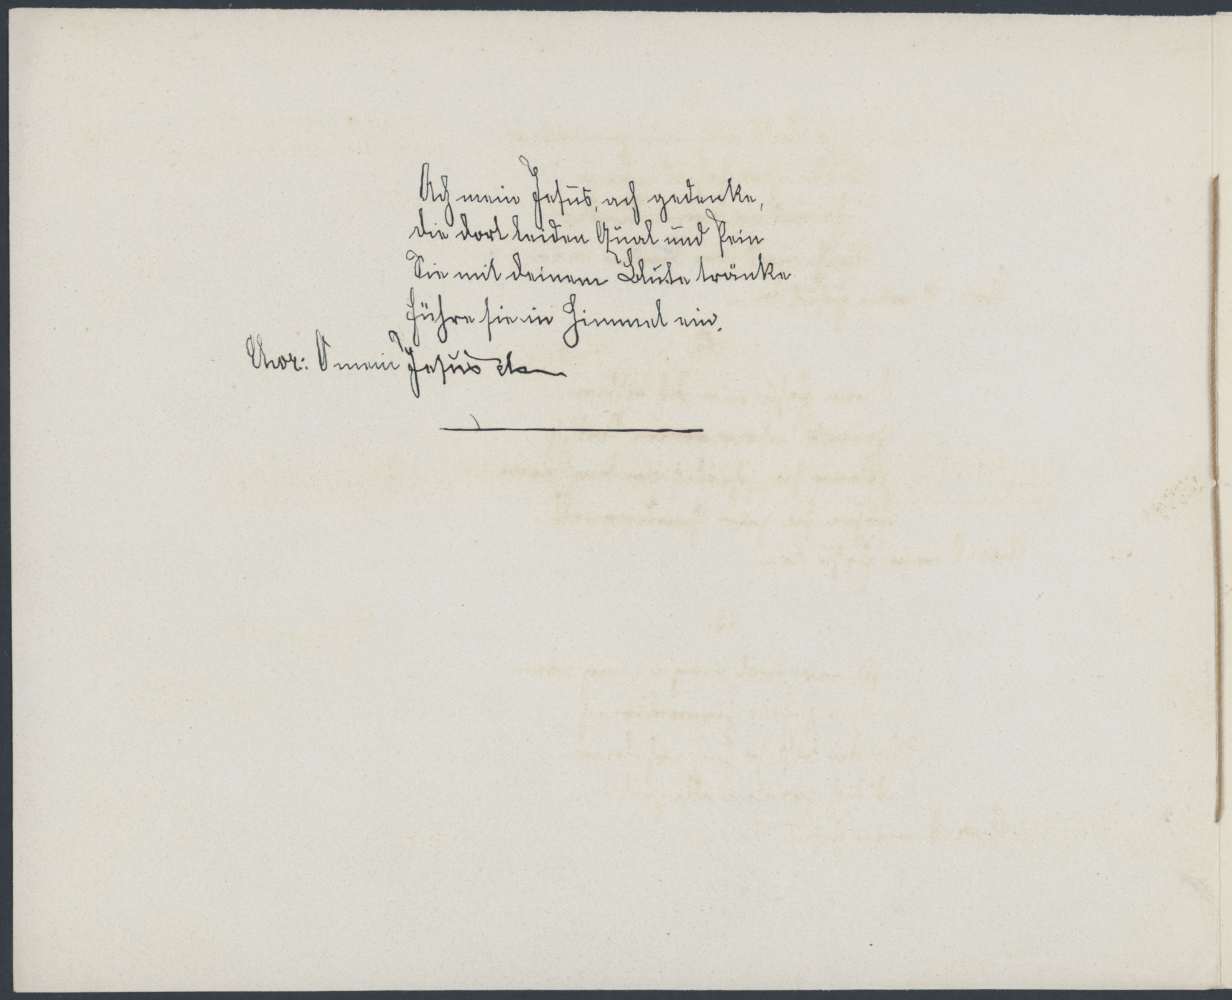 Ach mein Jesus, ach gedenke,
die dort leiden Qual und Pein
Sie mit deinem Blute tränke
Führe sie in Himmel ein.
Chor: O mein Jesus etc